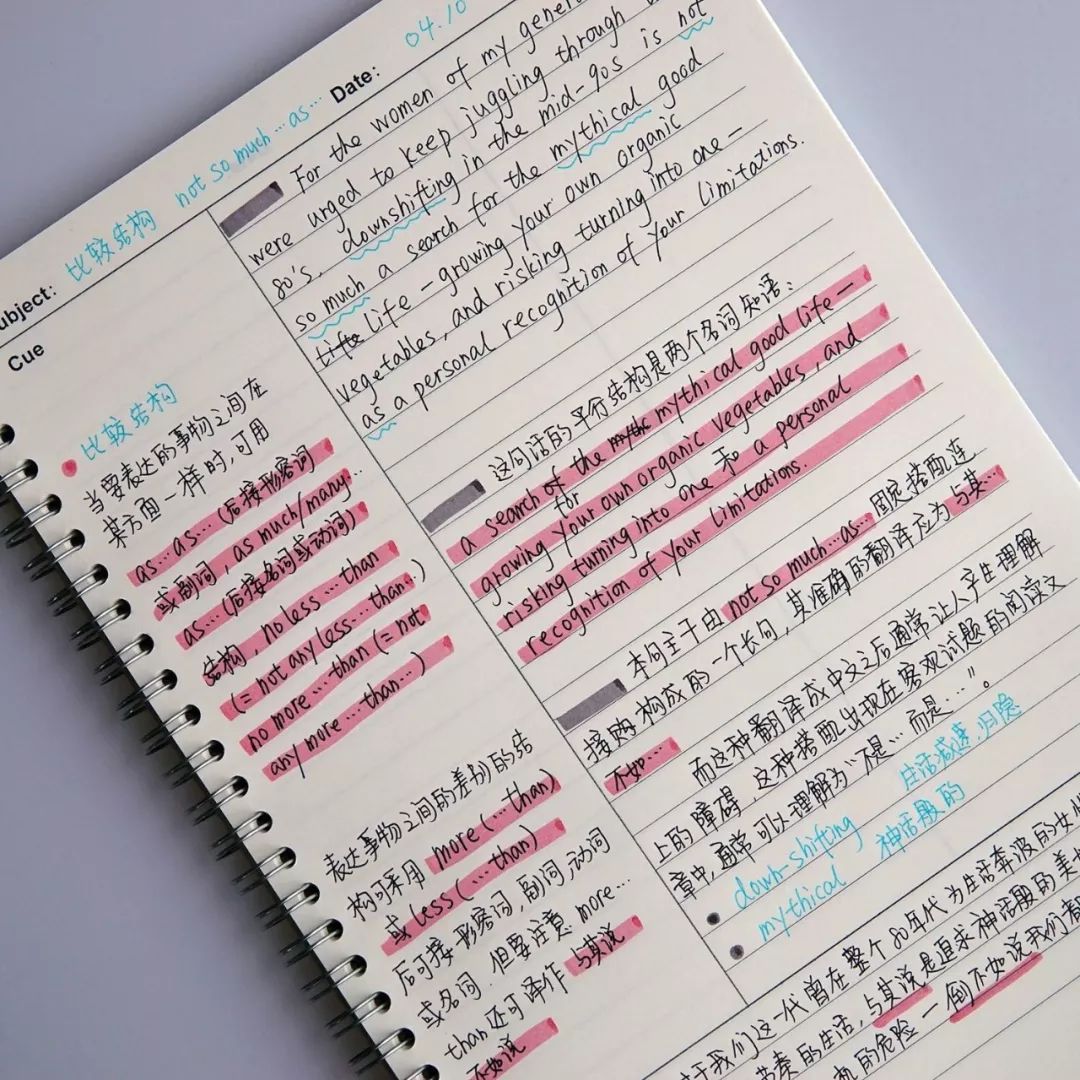 04.10
Date:
ubject: 比较结构 not so much…as…
Cue
比较结构
当要表达的事物之间在
某方面一样时,可用
as…as…(后接形容词
或副词, as much/many…
as…(后接名词或动词)
结构, no less…than
(= not any less…than…)
no more…than (= not
any more…than…)
表达事物之间的差别的结
构可采用 more (…than)
或 less (…than)
后可接形容词,副词,动词
或名词.但要注意 more…
than还可译作 与其说
不如说
For the women of my gener
were urged to keep juggling through
80's, downshifting in the mid-90s is not
so much a search for the mythical good
life - growing your own organic
vegetables, and risking turning into one -
as a personal recognition of your limitations.
这句话的平行结构是两个名词短语:
a search of the mythical good life —
for
growing your own organic vegetables, and
risking turning into one 和 a personal
recognition of your limitations.
本句主干由 not so much…as… 固定搭配连
接购构成的一个长句,其准确的翻译应为 与其…
不如…
而这种翻译成中文之后通常让人产生理解
上的障碍,这种搭配出现在客观试题的阅读文
章中,通常可以理解为"不是…而是…"。
down-shifting 生活减速,归隐
mythical 神话般的
于我们这一代曾在整个80年代为生活奔波的女
节奏的生活,与其说是追求神话般的美
的危险—倒不如说我们